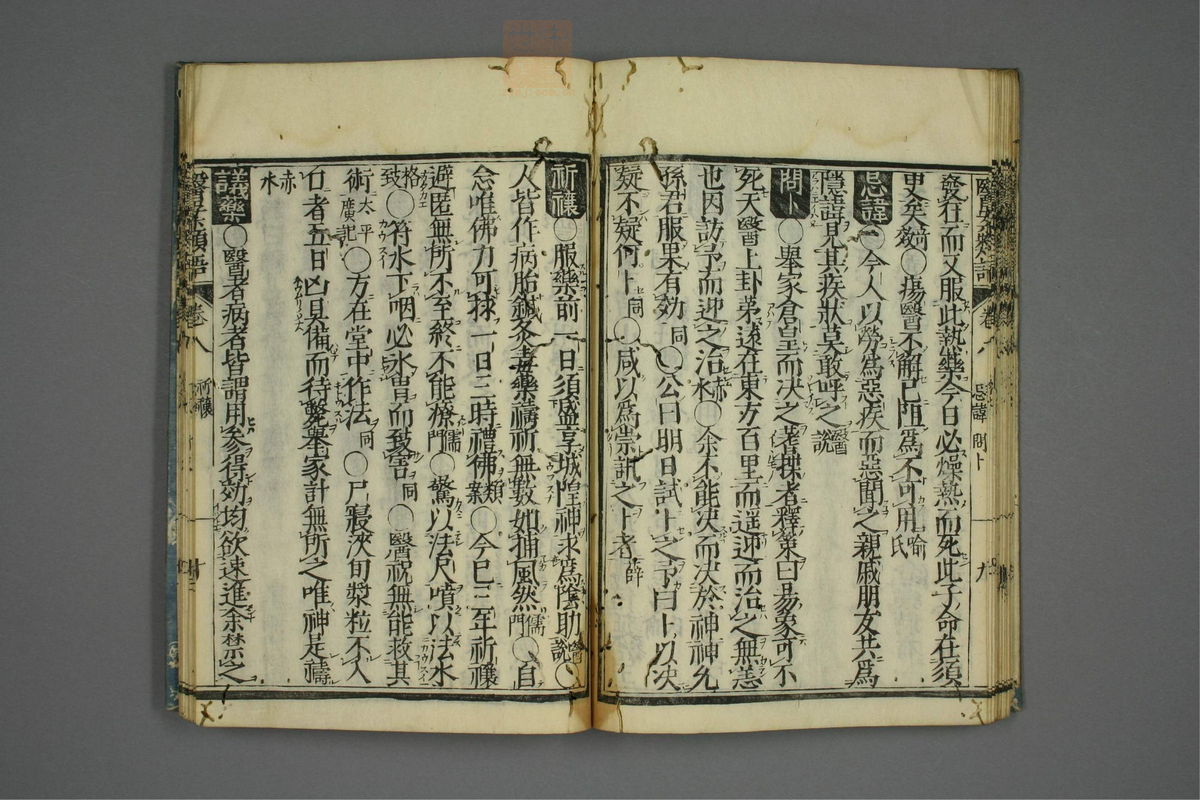 發在而又服此熱藥今日必燥熱而死此子命在須
臾矣 ○瘍醫不解已阻爲不可用 喻氏
忌諱 ○今人以勞爲惡疾而惡聞之親戚朋友共爲
隱諱見其疾狀莫敢呼之 醫說
問卜 ○舉家倉皇而决之蓍揲者釋策曰易象可不
死天醫上卦弟遠在東方百里而遥迎而治之無恙
也因訪予而迎之治 赤水 ○余不能决而决於神神允
孫君服果有効 同 ○公曰明日試卜之予曰卜以决
疑不疑何卜 同 ○咸以爲祟訊之卜者 薛
祈禳 ○服藥前一日須盛享城隍神求爲陰助 醫說 ○
人皆作病胎鍼灸毒藥禱祈無數如捕風然 儒門 ○自
念唯佛力可救一日三時禮佛 類案 ○今巳三年祈禳
避匿無所不至終不能療 儒門 ○驚以法尺噴以法水
○符水下咽必水胃而致害 同 ○醫祝無能救其
術 太平廣記 ○方在堂中作法 同 ○尸寢浹旬漿粒不入
口者五日凶具備而待斃舉家計無所之唯神是禱
赤水
議藥 ○醫者病者皆謂用參得効均欲速進余禁之
卷八 忌諱 問卜 九
醫 卷八 祈禳 十